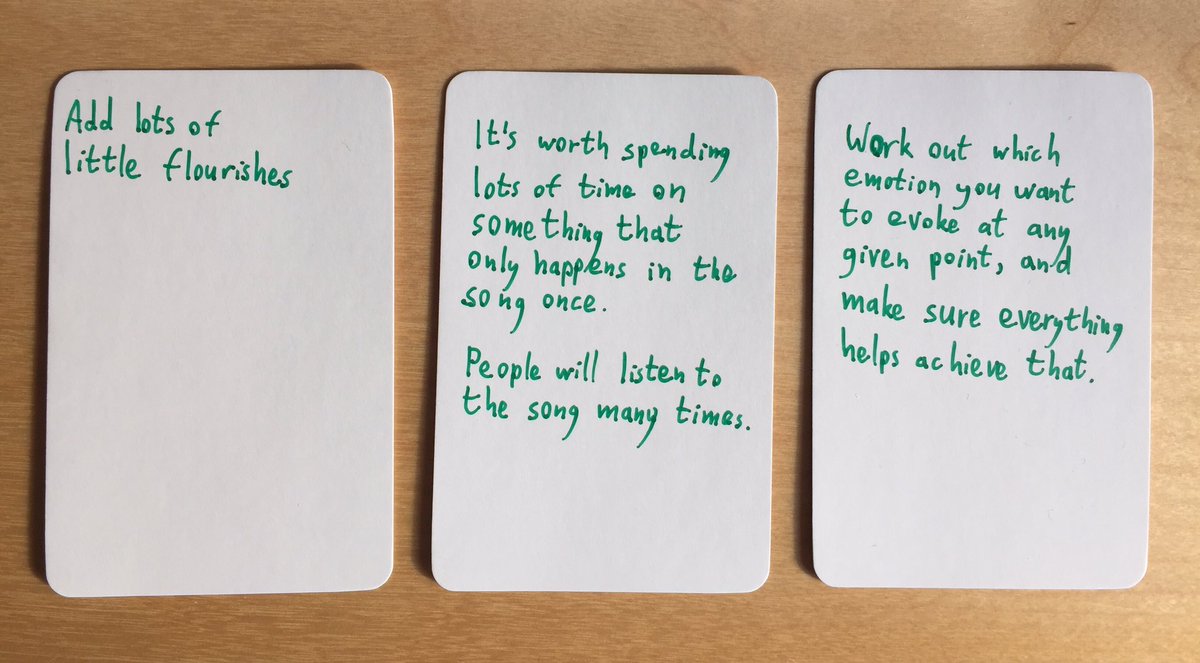 Add lots of
little flourishes
It's worth spending
lots of time on
something that
only happens in the
song once.
People will listen to
the song many times.
Work out which
emotion you want
to evoke at any
given point, and
make sure everything
helps achieve that.